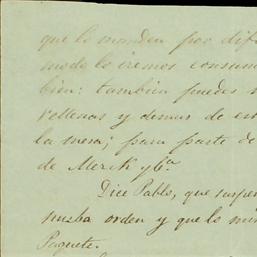 que lo manden por dife
modo lo iremos consumi
bien: tambien puedes
y demas de es
la mesa; para parte de
de Merck y Ca.
Dice Pablo, que suspen
nueba orden y que lo mi
Paquete.